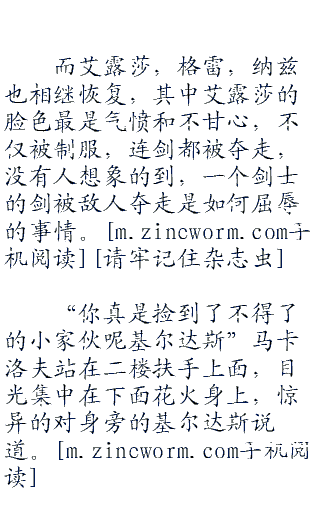 而艾露莎，格雷，纳兹
也相继恢复，其中艾露莎的
脸色最是气愤和不甘心，不
仅被制服，连剑都被夺走，
没有人想象的到，一个剑士
的剑被敌人夺走是如何屈辱
的事情。[m.zincworm.com手
机阅读][请牢记住杂志虫]
“你真是捡到了不得了
的小家伙呢基尔达斯”马卡
洛夫站在二楼扶手上面，目
光集中在下面花火身上，惊
异的对身旁的基尔达斯说
道。[m.zincworm.com手机阅
读]